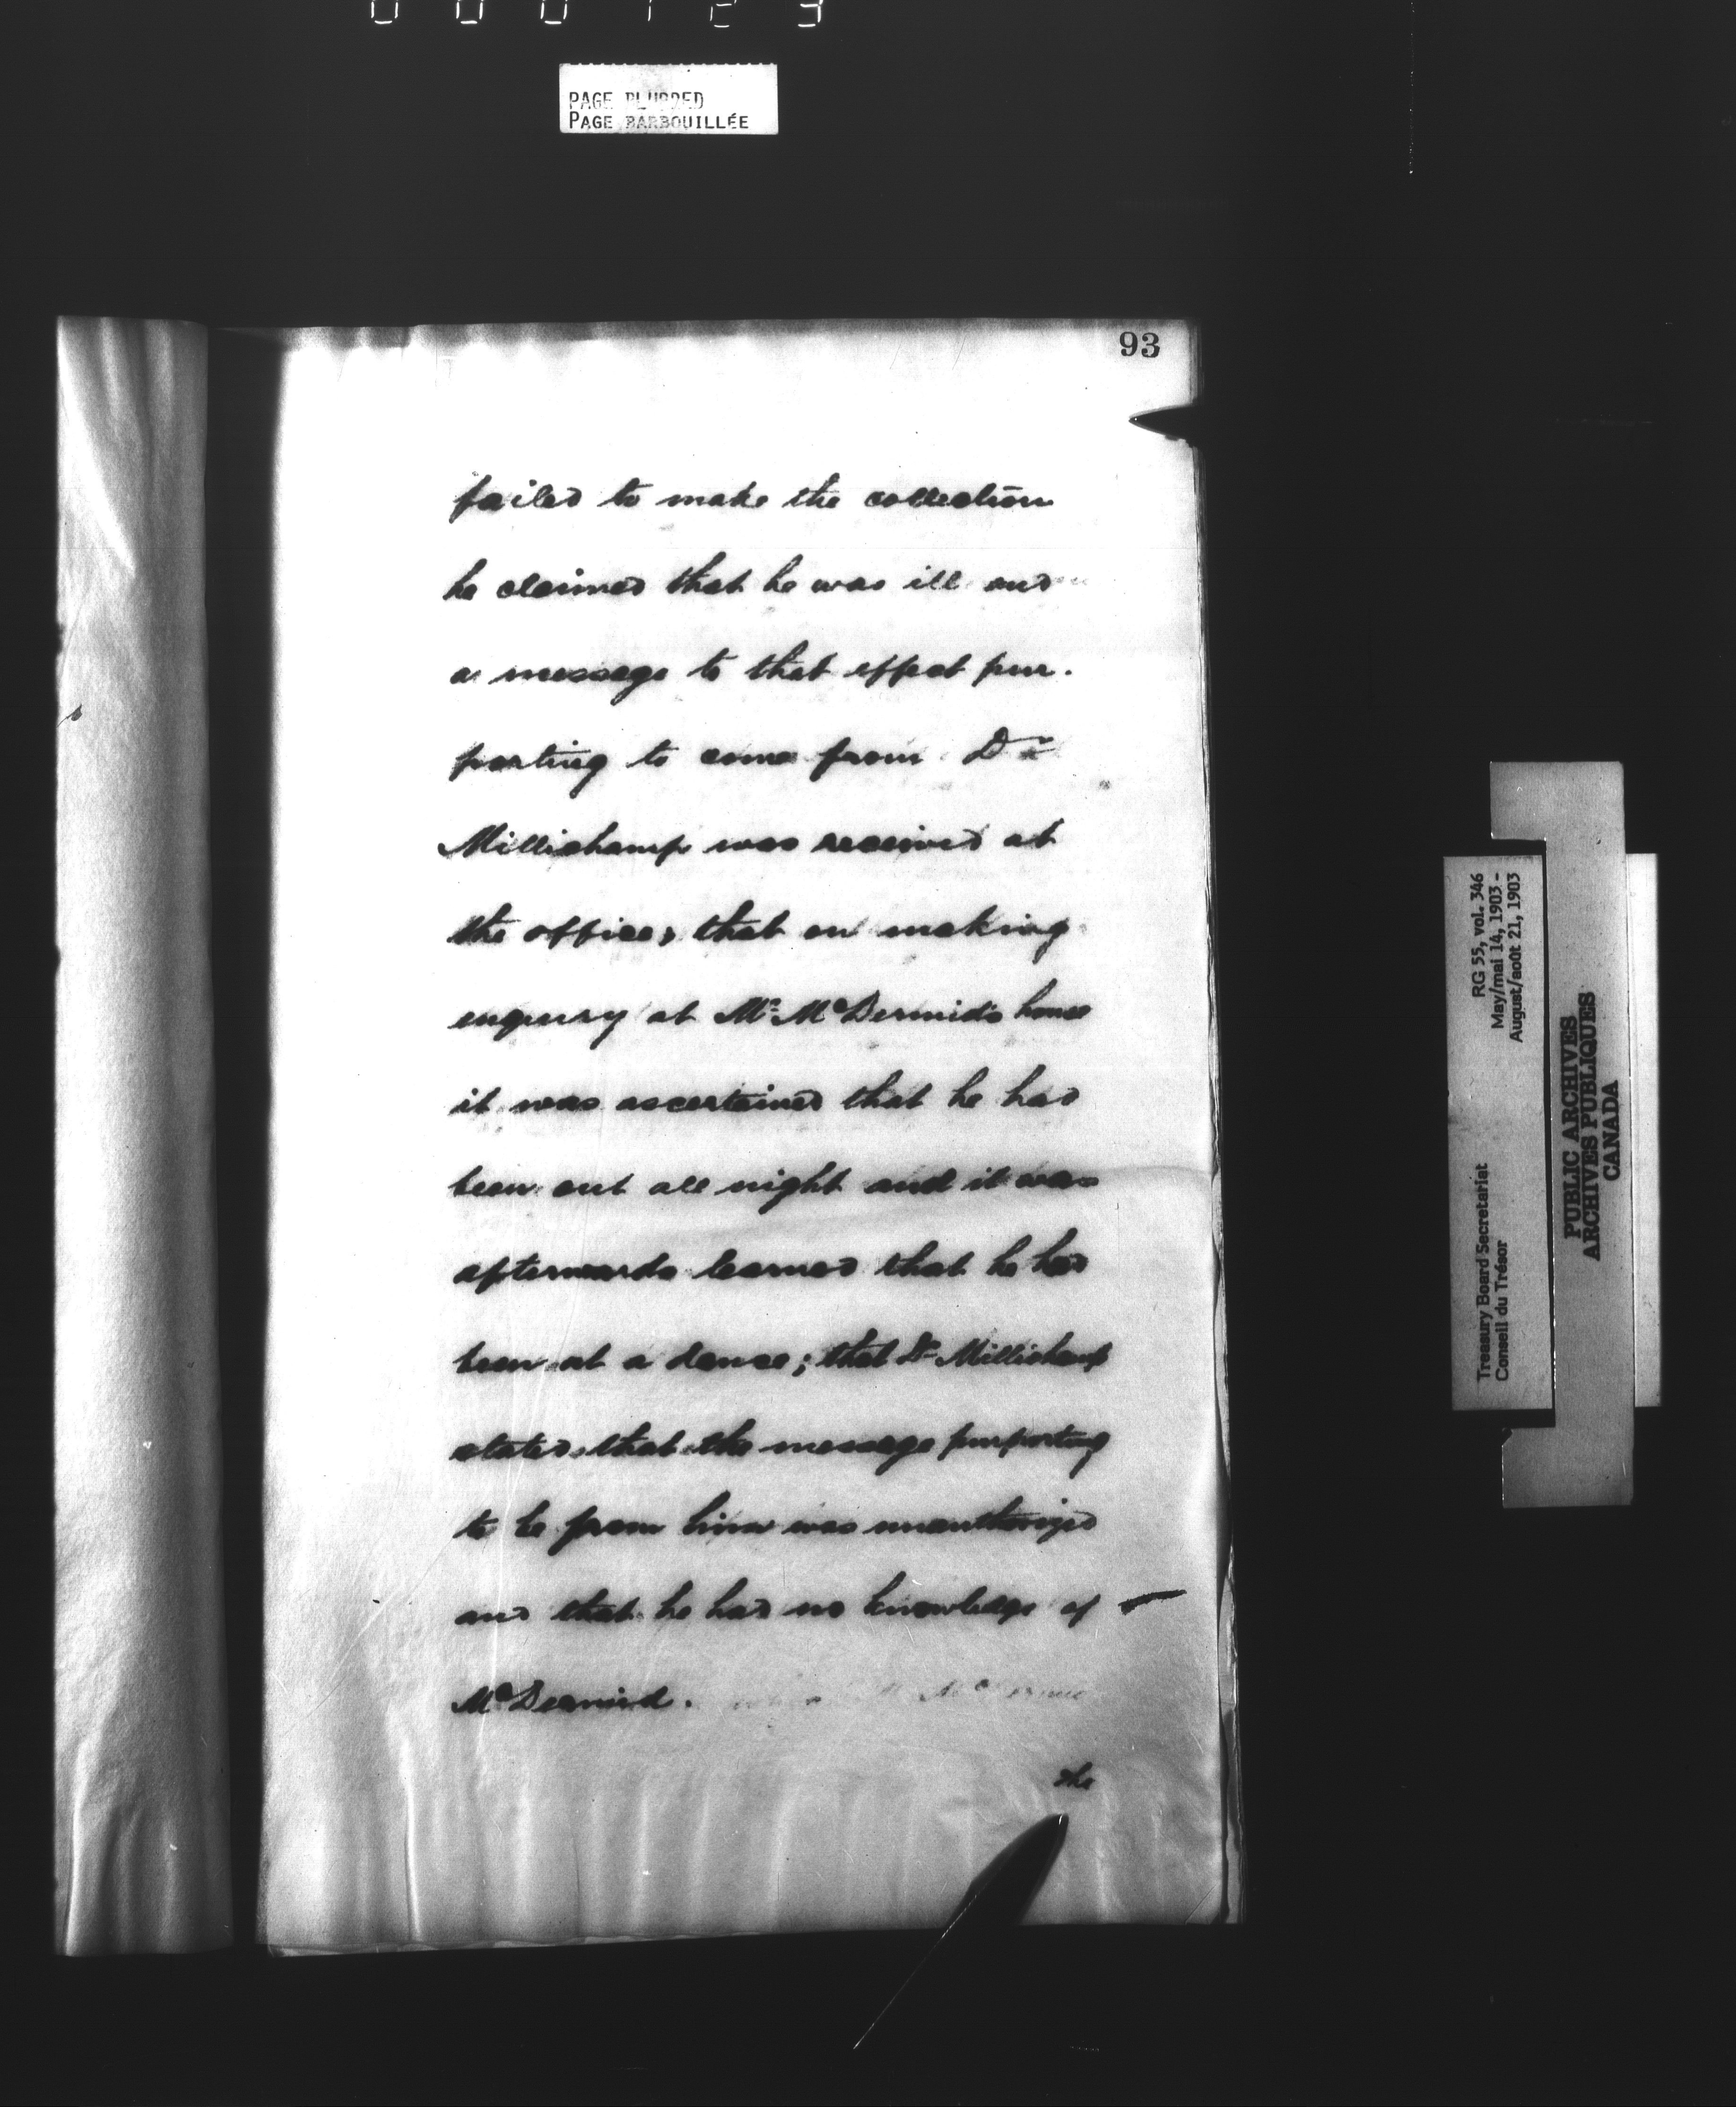 000123
PAGE BLURRED
PAGE BARBOUILLÉE
93
failed to make the collection
he claimed that he was ill and
a message to that effect pur-
porting to come from Dr
Millichamp was received at
the office; that on making
enquiry at Mr McDermid's house
it was ascertained that he had
been out all night and it was
afterwards learned that he had
been at a dance; that Dr Millichamp
stated that the message purporting
to be from him was unauthorized
and that he had no knowledge of
McDermid.
the
RG 55, vol. 346
May/mai 14, 1903 -
August/août 21, 1903
Treasury Board Secretariat
Conseil du Trésor
PUBLIC ARCHIVES
ARCHIVES PUBLIQUES
CANADA